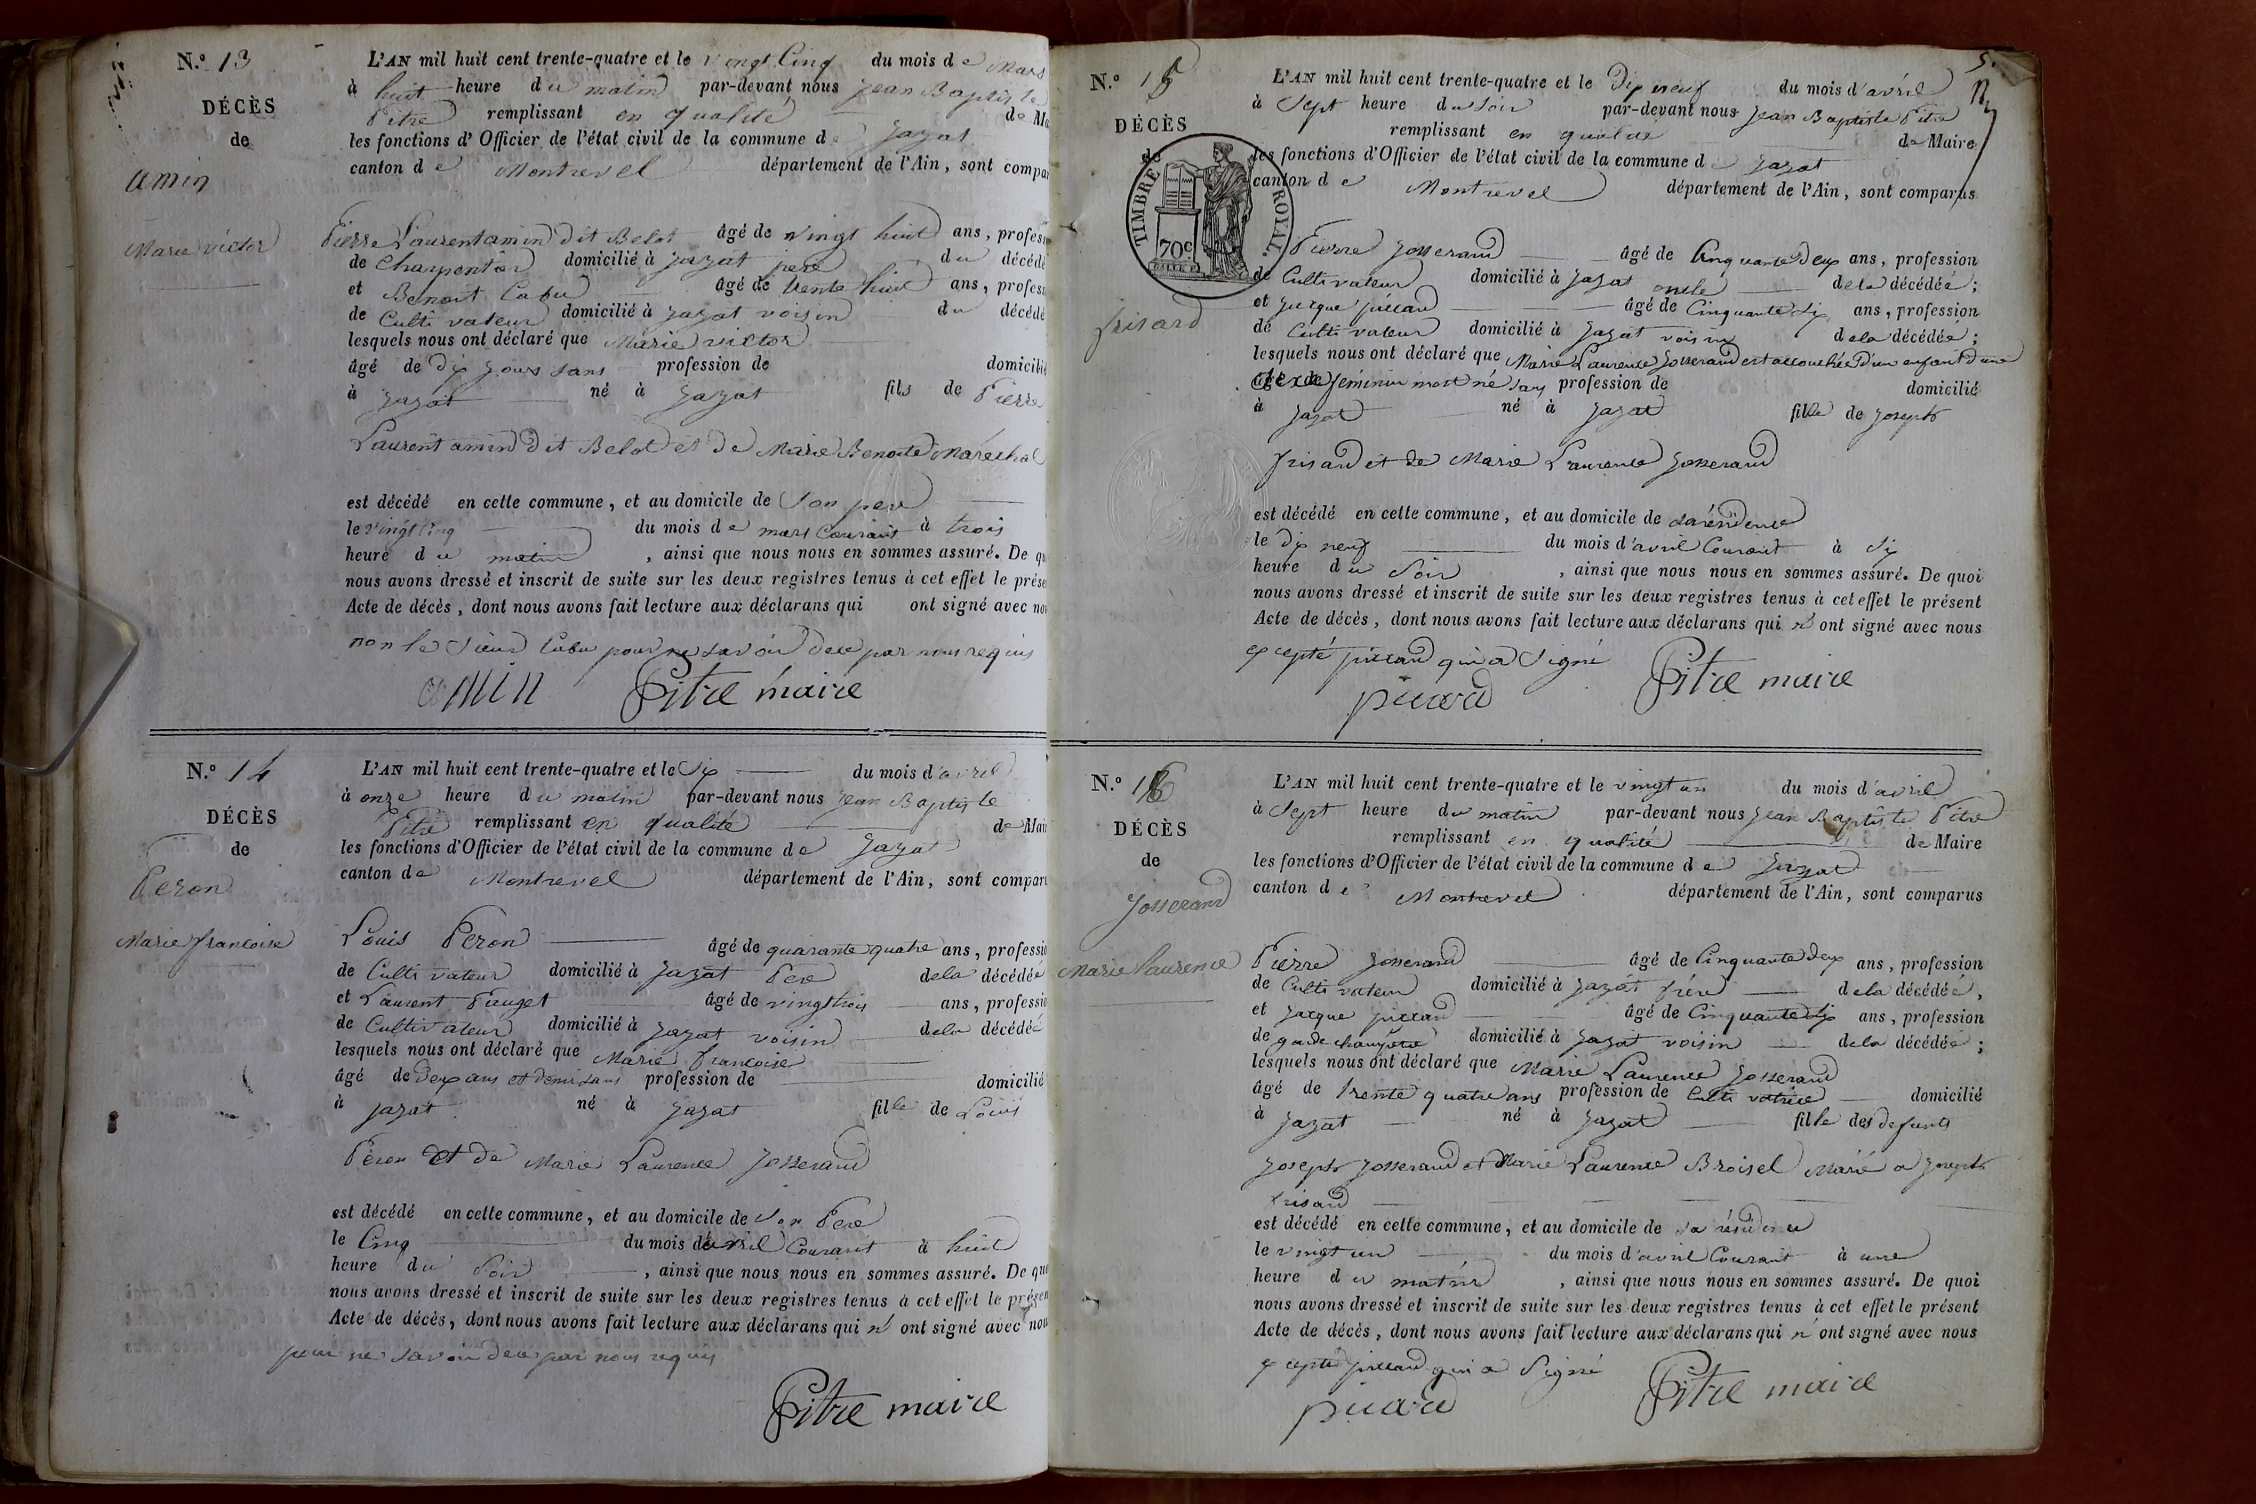 N.º 13
DÉCÈS
de
amin
Marie victor
L'AN mil huit cent trente-quatre et le vingt Cinq du mois de Mars
à huit heure du matin par-devant nous Jean Baptiste
Pitre remplissant en qualité de Ma
les fonctions d'Officier de l'état civil de la commune de Jayat
canton de Montrevel département de l'Ain, sont compar
Pierre Laurent amin dit Belot âgé de vingt huit ans, profess
de Charpentier domicilié à Jayat pere du décédé
et Benoit Cabu âgé de trente huit ans, profess
de Cultivateur domicilié à Jayat voisin du décédé
lesquels nous ont déclaré que Marie victor
âgé de dix jours sans profession de domicilié
à Jayat né à Jayat fils de Pierre
Laurent amin dit Belot et de Marie Benoite Maréchal
est décédé en cette commune, et au domicile de son pere
le vingt Cinq du mois de mars Courant à trois
heure du matin, ainsi que nous nous en sommes assuré. De qu
nous avons dressé et inscrit de suite sur les deux registres tenus à cet effet le prése
Acte de décès, dont nous avons fait lecture aux déclarans qui ont signé avec nou
non le Sieur Cabu pour ne savoir de ce par nous requis
amin Pitre maire
N.º 14
DÉCÈS
de
Peron
Marie francoise
L'AN mil huit cent trente-quatre et le Six du mois d'avril
à onze heure du matin par-devant nous Jean Baptiste
Pitre remplissant en qualité de Mai
les fonctions d'Officier de l'état civil de la commune de Jayat
canton de Montrevel département de l'Ain, sont compar
Louis Peron âgé de quarante quatre ans, professio
de Cultivateur domicilié à Jayat Pere de la décédée
et Laurent Pauget âgé de vingt trois ans, professio
de Cultivateur domicilié à Jayat voisin de la décédée
lesquels nous ont déclaré que Marie francoise
âgé de deux ans et demi sans profession de domicilié
à Jayat né à Jayat fille de Louis
Peron et de Marie Laurence Josserand
est décédé en cette commune, et au domicile de son Pere
le Cinq du mois d'avril Courant à huit
heure du Soir, ainsi que nous nous en sommes assuré. De quo
nous avons dressé et inscrit de suite sur les deux registres tenus à cet effet le présen
Acte de décès, dont nous avons fait lecture aux déclarans qui n' ont signé avec nou
pour ne savoir de ce par nous requis
Pitre maire
5.
N.º 15
DÉCÈS
de
TIMBRE ROYAL.
70c
frisard
L'AN mil huit cent trente-quatre et le Dix neuf du mois d'avril
à Sept heure du Soir par-devant nous Jean Baptiste Pitre
remplissant en qualité de Maire
les fonctions d'Officier de l'état civil de la commune de Jayat
canton de Montrevel département de l'Ain, sont comparus
Pierre Josserand âgé de Cinquante Deux ans, profession
de Cultivateur domicilié à Jayat oncle de la décédée;
et Jacque piccard âgé de Cinquante Six ans, profession
de Cultivateur domicilié à Jayat voisin de la décédée;
lesquels nous ont déclaré que Marie Laurence Josserand est accouchée D'un enfant d'une
sexe féminin mort né sans profession de domicilié
à Jayat né à Jayat fille de Joseph
frisard et de Marie Laurence Josserand
est décédé en cette commune, et au domicile de sa résidence
le dix neuf du mois d'avril Courant à Six
heure du Soir, ainsi que nous nous en sommes assuré. De quoi
nous avons dressé et inscrit de suite sur les deux registres tenus à cet effet le présent
Acte de décès, dont nous avons fait lecture aux déclarans qui n' ont signé avec nous
excepté piccard qui a Signé
picard Pitre maire
N.º 16
DÉCÈS
de
Josserand
Marie Laurence
L'AN mil huit cent trente-quatre et le vingt un du mois d'avril
à Sept heure du matin par-devant nous Jean Baptiste Pitre
remplissant en qualité de Maire
les fonctions d'Officier de l'état civil de la commune de Jayat
canton de Montrevel département de l'Ain, sont comparus
Pierre Josserand âgé de Cinquante deux ans, profession
de Cultivateur domicilié à Jayat frére de la décédée,
et Jacque piccard âgé de Cinquante Six ans, profession
de garde champetre domicilié à Jayat voisin de la décédée;
lesquels nous ont déclaré que Marie Laurence Josserand
âgé de trente quatre ans profession de Cultivatrice domicilié
à Jayat né à Jayat fille des defunts
Joseph Josserand et Marie Laurence Broisel Marié a Joseph
frisard
est décédé en cette commune, et au domicile de sa résidence
le vingt un du mois d'avril Courant à une
heure du matin, ainsi que nous nous en sommes assuré. De quoi
nous avons dressé et inscrit de suite sur les deux registres tenus à cet effet le présent
Acte de décès, dont nous avons fait lecture aux déclarans qui n' ont signé avec nous
excepté piccard qui a Signé
picard Pitre maire